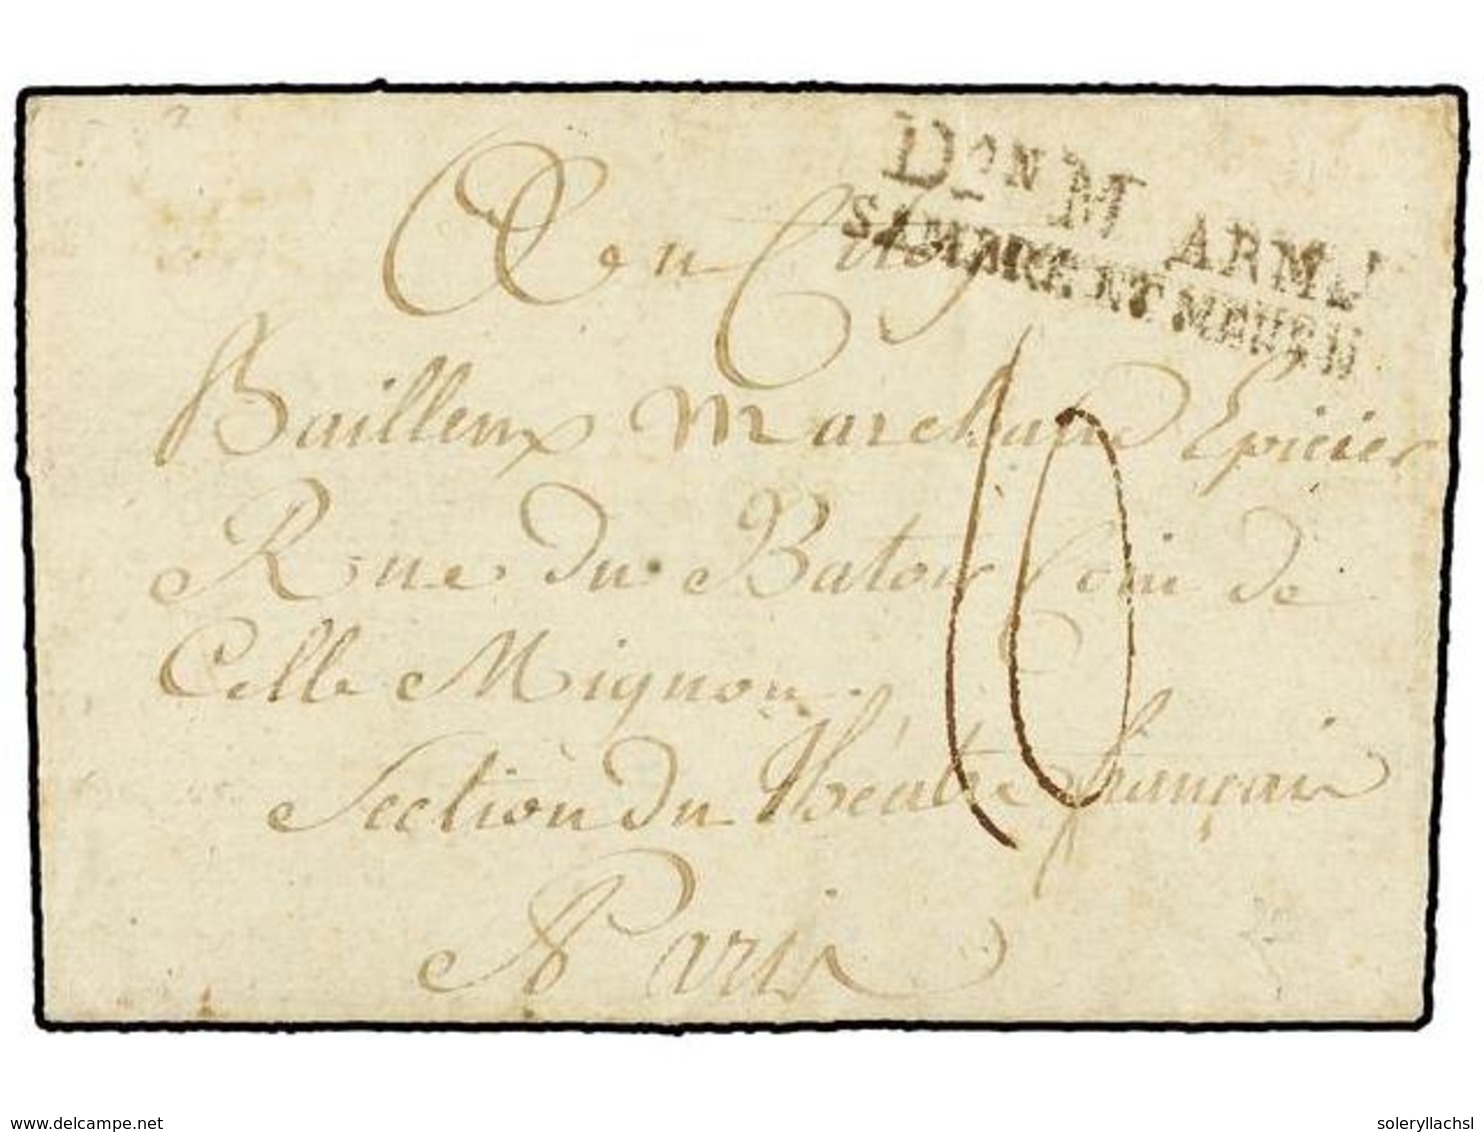 Don M ARMEE
SAMBRE ET MEUSE
Au Citoyen
Bailleux Marchand Epicier
Rue du Batoir Coin de
Celle Mignon
Section du théatre français
A Paris
10
delcampe.net
soleryllachsl